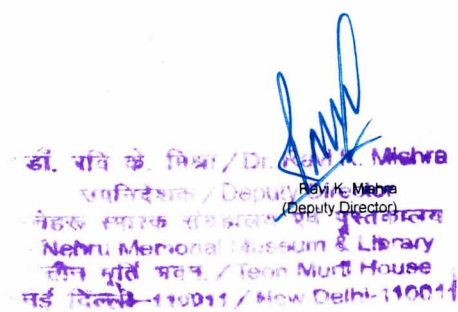 डॉ. रवि के. मिश्रा / Dr. Ravi K. Mishra
उपनिदेशक / Deputy Director
Ravi K. Mishra
(Deputy Director)
नेहरू स्मारक संग्रहालय एवं पुस्तकालय
Nehru Memorial Museum & Library
तीन मूर्ति भवन, / Teen Murti House
नई दिल्ली-110011 / New Delhi-110011